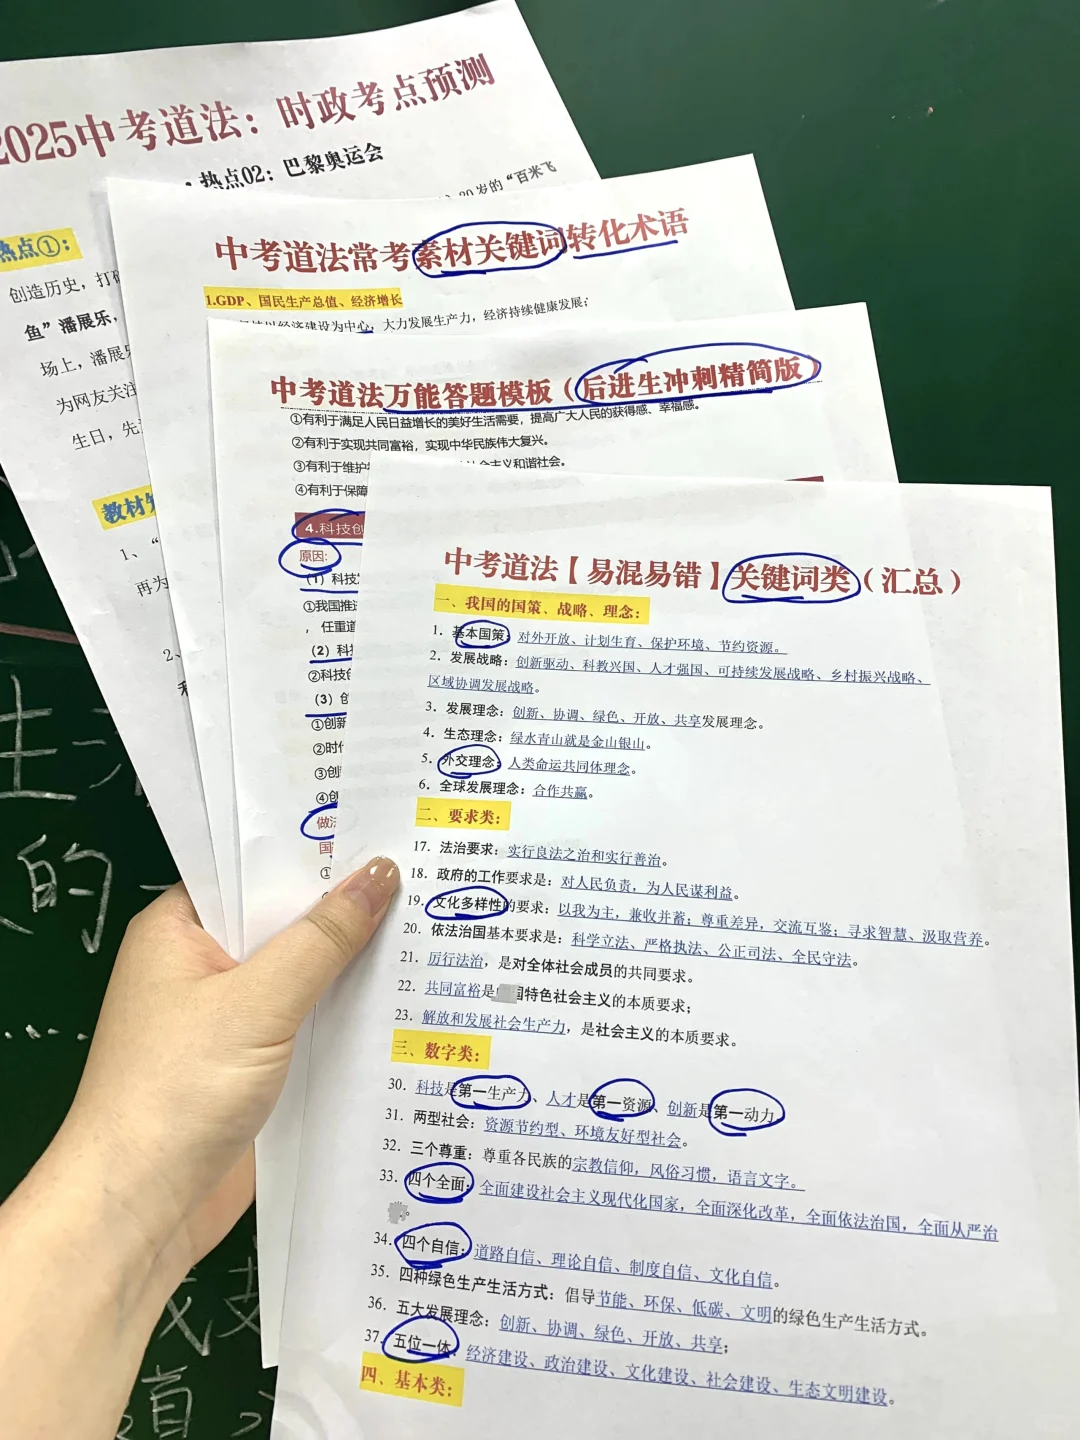 2025中考道法：时政考点预测
热点02：巴黎奥运会
岁的“百米飞
热点①：
创造历史，打
鱼”潘展乐，
场上，潘展
为网友关注
生日，先
教材
1、“
再为
2、
中考道法常考素材关键词转化术语
1.GDP、国民生产总值、经济增长
以经济建设为中心，大力发展生产力，经济持续健康发展；
中考道法万能答题模板（后进生冲刺精简版）
①有利于满足人民日益增长的美好生活需要，提高广大人民的获得感、幸福感。
②有利于实现共同富裕，实现中华民族伟大复兴。
③有利于维护 社会主义和谐社会。
④有利于保障
4.科技创
原因:
（1）科技
①我国推进
，任重道
（2）科技
②科技创
（3）创
①创新
②时代
③创
④创
做法
国
①
中考道法【易混易错】关键词类（汇总）
一、我国的国策、战略、理念：
1. 基本国策：对外开放、计划生育、保护环境、节约资源。
2. 发展战略：创新驱动、科教兴国、人才强国、可持续发展战略、乡村振兴战略、
区域协调发展战略。
3. 发展理念：创新、协调、绿色、开放、共享发展理念。
4. 生态理念：绿水青山就是金山银山。
5. 外交理念：人类命运共同体理念。
6. 全球发展理念：合作共赢。
二、要求类：
17. 法治要求：实行良法之治和实行善治。
18. 政府的工作要求是：对人民负责，为人民谋利益。
19. 文化多样性的要求：以我为主，兼收并蓄；尊重差异，交流互鉴；寻求智慧、汲取营养。
20. 依法治国基本要求是：科学立法、严格执法、公正司法、全民守法。
21. 厉行法治，是对全体社会成员的共同要求。
22. 共同富裕是 国特色社会主义的本质要求；
23. 解放和发展社会生产力，是社会主义的本质要求。
三、数字类：
30. 科技是第一生产力、人才是第一资源、创新是第一动力
31. 两型社会：资源节约型、环境友好型社会。
32. 三个尊重：尊重各民族的宗教信仰，风俗习惯，语言文字。
33. 四个全面：全面建设社会主义现代化国家，全面深化改革，全面依法治国，全面从严治
。
34. 四个自信：道路自信、理论自信、制度自信、文化自信。
35. 四种绿色生产生活方式：倡导节能、环保、低碳、文明的绿色生产生活方式。
36. 五大发展理念：创新、协调、绿色、开放、共享；
37. 五位一体：经济建设、政治建设、文化建设、社会建设、生态文明建设。
四、基本类：
生
的
真